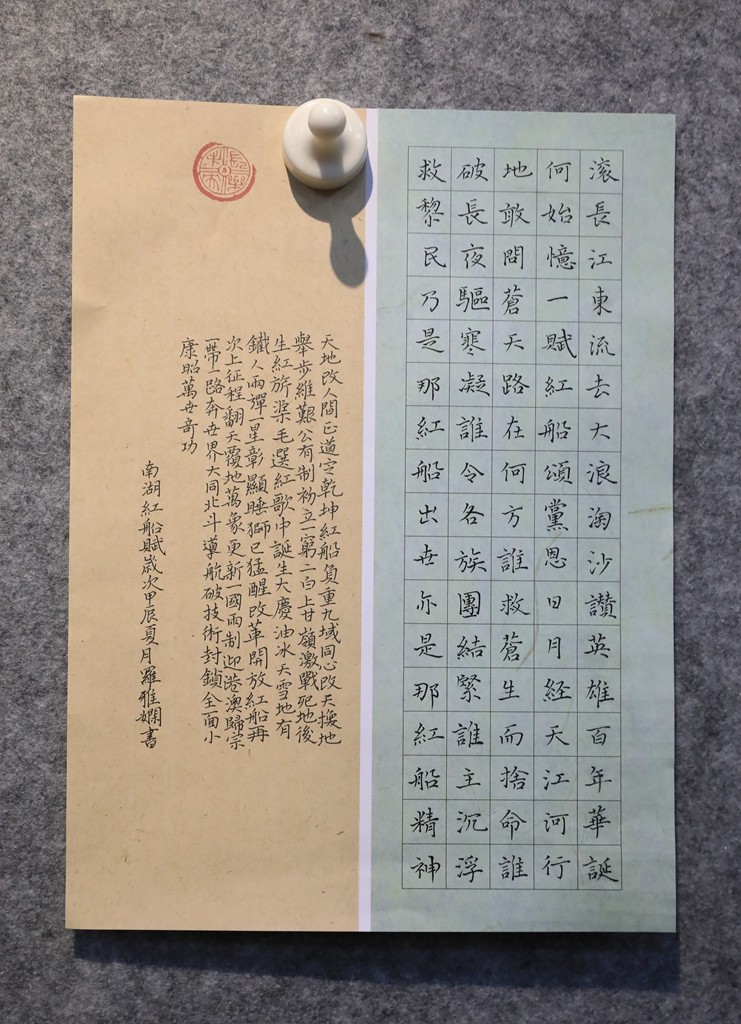 滾長江東流去大浪淘沙讚英雄百年華誕
何始憶一賦紅船頌黨恩日月経天江河行
地敢問蒼天路在何方誰救蒼生而捨命誰
破長夜驅寒凝誰令各族團結緊誰主沉浮
救黎民乃是那紅船出世亦是那紅船精神
天地改人間正道定乾坤紅船負重九域同心改天換地
舉步維艱公有制初立一窮二白上甘嶺激戰死地後
生紅旂渠毛選紅歌中誕生大慶油冰天雪地有
鐵人兩彈一星彰顯睡獅已猛醒改革開放紅船再
次上征程翻天覆地萬象更新一國兩制迎港澳歸宗
一帶一路奔世界大同北斗導航破技術封鎖全面小
康昭萬世奇功
南湖紅船賦歲次甲辰夏月羅雅嫻書